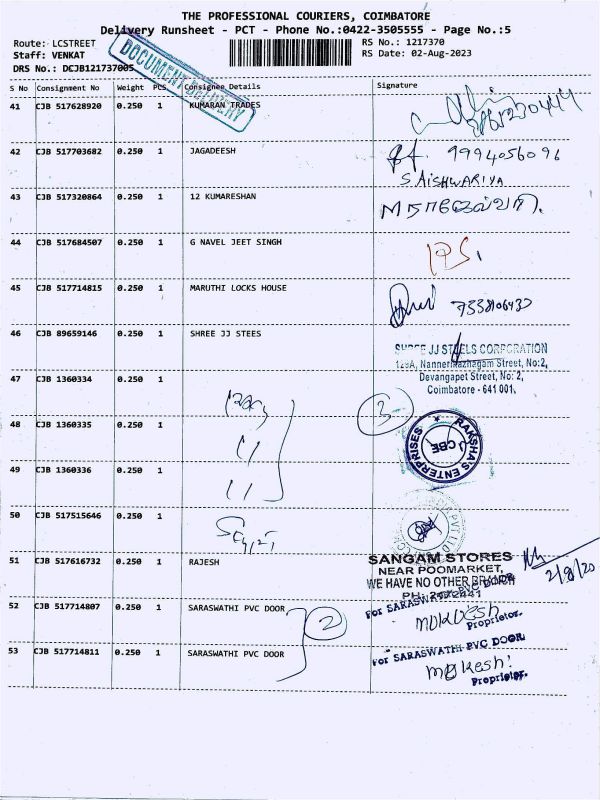 THE PROFESSIONAL COURIERS, COIMBATORE
Delivery Runsheet - PCT - Phone No.:0422-3505555 - Page No.:5
Route: LCSTREET
RS No.: 1217370
Staff: VENKAT
RS Date: 02-Aug-2023
DRS No.: DCJB121737005
DOCUMENT DELIVERY
S No Consignment No Weight PCS Consignee Details Signature
41 CJB 517628920 0.250 1 KUMARAN TRADES
42 CJB 517703682 0.250 1 JAGADEESH 9994056096
S AISHWARIYA
43 CJB 517320864 0.250 1 12 KUMARESHAN
44 CJB 517684507 0.250 1 G NAVEL JEET SINGH
45 CJB 517714815 0.250 1 MARUTHI LOCKS HOUSE
46 CJB 89659146 0.250 1 SHREE JJ STEES
SHREE JJ STEELS CORPORATION
128A, Nannermazhagam Street, No:2,
Devangapet Street, No: 2,
Coimbatore - 641 001.
47 CJB 1360334 0.250 1
3
48 CJB 1360335 0.250 1
RAKSHAS ENTERPRISES
CBE
49 CJB 1360336 0.250 1
50 CJB 517515646 0.250 1
51 CJB 517616732 0.250 1 RAJESH
SANGAM STORES
NEAR POOMARKET,
WE HAVE NO OTHER BRANCH
52 CJB 517714807 0.250 1 SARASWATHI PVC DOOR
For SARASWATHI PVC DOOR
2
Proprietor.
53 CJB 517714811 0.250 1 SARASWATHI PVC DOOR
For SARASWATHI PVC DOOR
Mukesh
Proprietor.